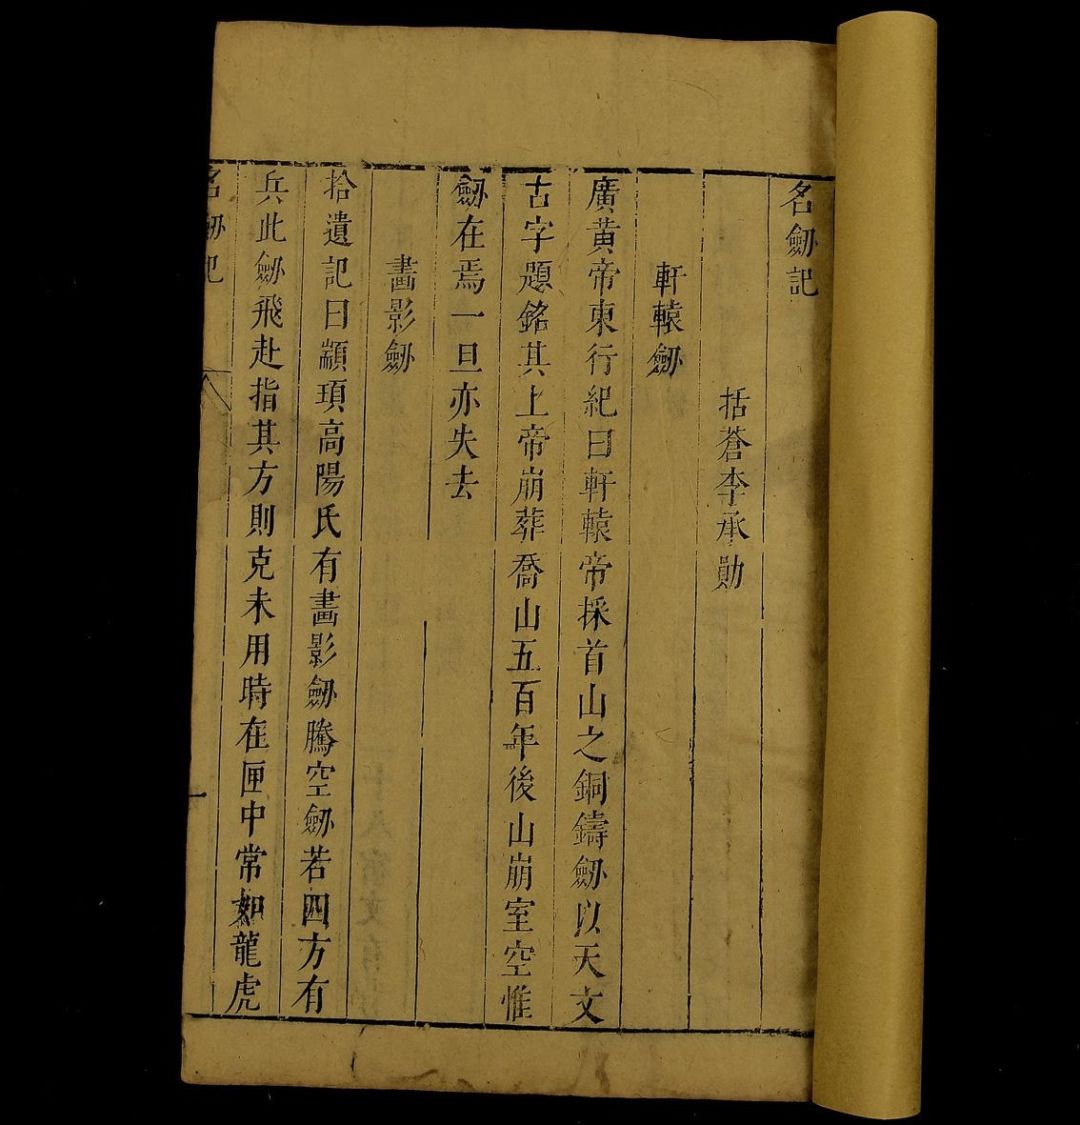 名劒記
括蒼李承勛
軒轅劒
廣黄帝東行紀曰軒轅帝採首山之銅鑄劒以天文
古字題銘其上帝崩葬喬山五百年後山崩室空惟
劒在焉一旦亦失去
畫影劒
拾遺記曰顓頊高陽氏有畫影劒騰空劒若四方有
兵此劒飛赴指其方則克未用時在匣中常如龍虎
名劒記